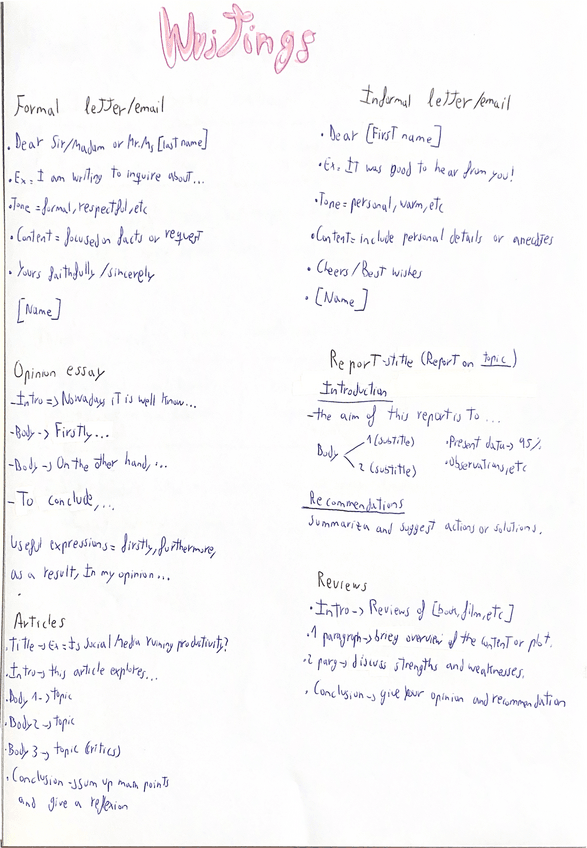 Writings
Formal letter/email
• Dear Sir/Madam or Mr./Ms [last name]
• Ex: I am writing to inquire about...
• Tone = formal, respectful, etc
• Content = focused on facts or request
• Yours faithfully / sincerely
[Name]
Opinion essay
- Intro => Nowadays it is well know...
- Body -> Firstly...
- Body -> On the other hand, ...
- To conclude, ...
Useful expressions = firstly, furthermore,
as a result, In my opinion...
Articles
• Title -> Ex = Is Social Media ruining productivity?
• Intro -> this article explores...
• Body 1 -> topic
• Body 2 -> topic
• Body 3 -> topic (critics)
• Conclusion -> sum up main points
and give a reflexion
Informal letter/email
• Dear [First name]
• Ex, It was good to hear from you!
• Tone = personal, warm, etc
• Content = include personal details or
• Cheers/Best wishes
• [Name]
Report -> title (Report on topic)
Introduction
- the aim of this report is to ...
Body
1 (subtitle)
2 (subtitle)
• Present data -> 45%
• Observations, etc
Recommendations
Summariza and suggest actions or solutions.
Reviews
• Intro -> Reviews of [book, film, etc]
• 1 paragraph -> brief overview of the content or plot.
• 2 parg -> discuss strengths and weaknesses.
• Conclusion -> give your opinion and recommendation